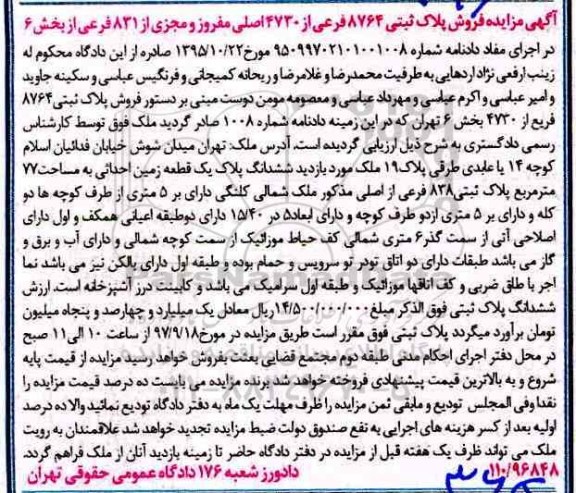 آگهی مزایده فروش پلاک ثبتی ۸۷۶۴ فرعی از ۴۷۳۰ اصلی مفروز و مجزی از ۸۳۱ فرعی از بخش ۶
در اجرای مفاد دادنامه شماره ۹۵۰۹۹۷۰۲۱۰۱۰۰۱۰۰۸ مورخ ۱۳۹۵/۱۰/۲۲ صادره از این دادگاه محکوم له
زینب ارفعی نژاد اردهایی به طرفیت محمدرضا و غلامرضا و ریحانه کمیجانی و فرنگیس عباسی و سکینه جاوید
و امیر عباسی و اکرم عباسی و مهرداد عباسی و معصومه مومن دوست مبنی بر دستور فروش پلاک ثبتی ۸۷۶۴
فریع از ۴۷۳۰ بخش ۶ تهران که در این زمینه دادنامه شماره ۱۰۰۸ صادر گردید ملک فوق توسط کارشناس
رسمی دادگستری به شرح ذیل ارزیابی گردیده است. آدرس ملک: تهران میدان شوش خیابان فدائیان اسلام
کوچه ۱۴ یا عابدی طرقی پلاک ۱۹ ملک مورد بازدید ششدانگ پلاک یک قطعه زمین احداثی به مساحت ۷۷
مترمربع پلاک ثبتی ۸۳۸ فرعی از اصلی مذکور ملک شمالی کلنگی دارای بر ۵ متری از طرف کوچه ها دو
کله و دارای بر ۵ متری ازدو طرف کوچه و دارای ابعاد ۵ در ۱۵/۴۰ دارای دوطبقه اعیانی همکف و اول دارای
اصلاحی آتی از سمت گذر ۶ متری شمالی کف حیاط موزائیک از سمت کوچه شمالی و دارای آب و برق و
گاز می باشد طبقات دارای دو اتاق تودر تو سرویس و حمام بوده و طبقه اول دارای بالکن نیز می باشد نما
اجر با طاق ضربی و کف اتاقها موزائیک و طبقه اول سرامیک می باشد و کابینت درز آشپزخانه است. ارزش
ششدانگ پلاک ثبتی فوق الذکر مبلغ ۱۴/۵۰۰/۰۰۰/۰۰۰ ریال معادل یک میلیارد و چهارصد و پنجاه میلیون
تومان برآورد میگردد پلاک ثبتی فوق مقرر است طریق مزایده در مورخ ۹۷/۹/۱۸ از ساعت ۱۰ الی ۱۱ صبح
در محل دفتر اجرای احکام مدنی طبقه دوم مجتمع قضایی بعثت بفروش خواهد رسید مزایده از قیمت پایه
شروع و به بالاترین قیمت پیشنهادی فروخته خواهد شد برنده مزایده می بایست ده درصد قیمت مزایده را
نقدا وفی المجلس تودیع و مابقی ثمن مزایده را ظرف مهلت یک ماه به دفتر دادگاه تودیع نمائید والا ده درصد
اولیه بعد از کسر هزینه های اجرایی به نفع صندوق دولت ضبط مزایده تجدید خواهد شد علاقمندان به رویت
ملک می تواند ظرف یک هفته قبل از مزایده در دفتر دادگاه حاضر تا زمینه بازدید آنان از ملک فراهم گردد.
۱۱۰/۹۶۸۴۸ دادورز شعبه ۱۷۶ دادگاه عمومی حقوقی تهران